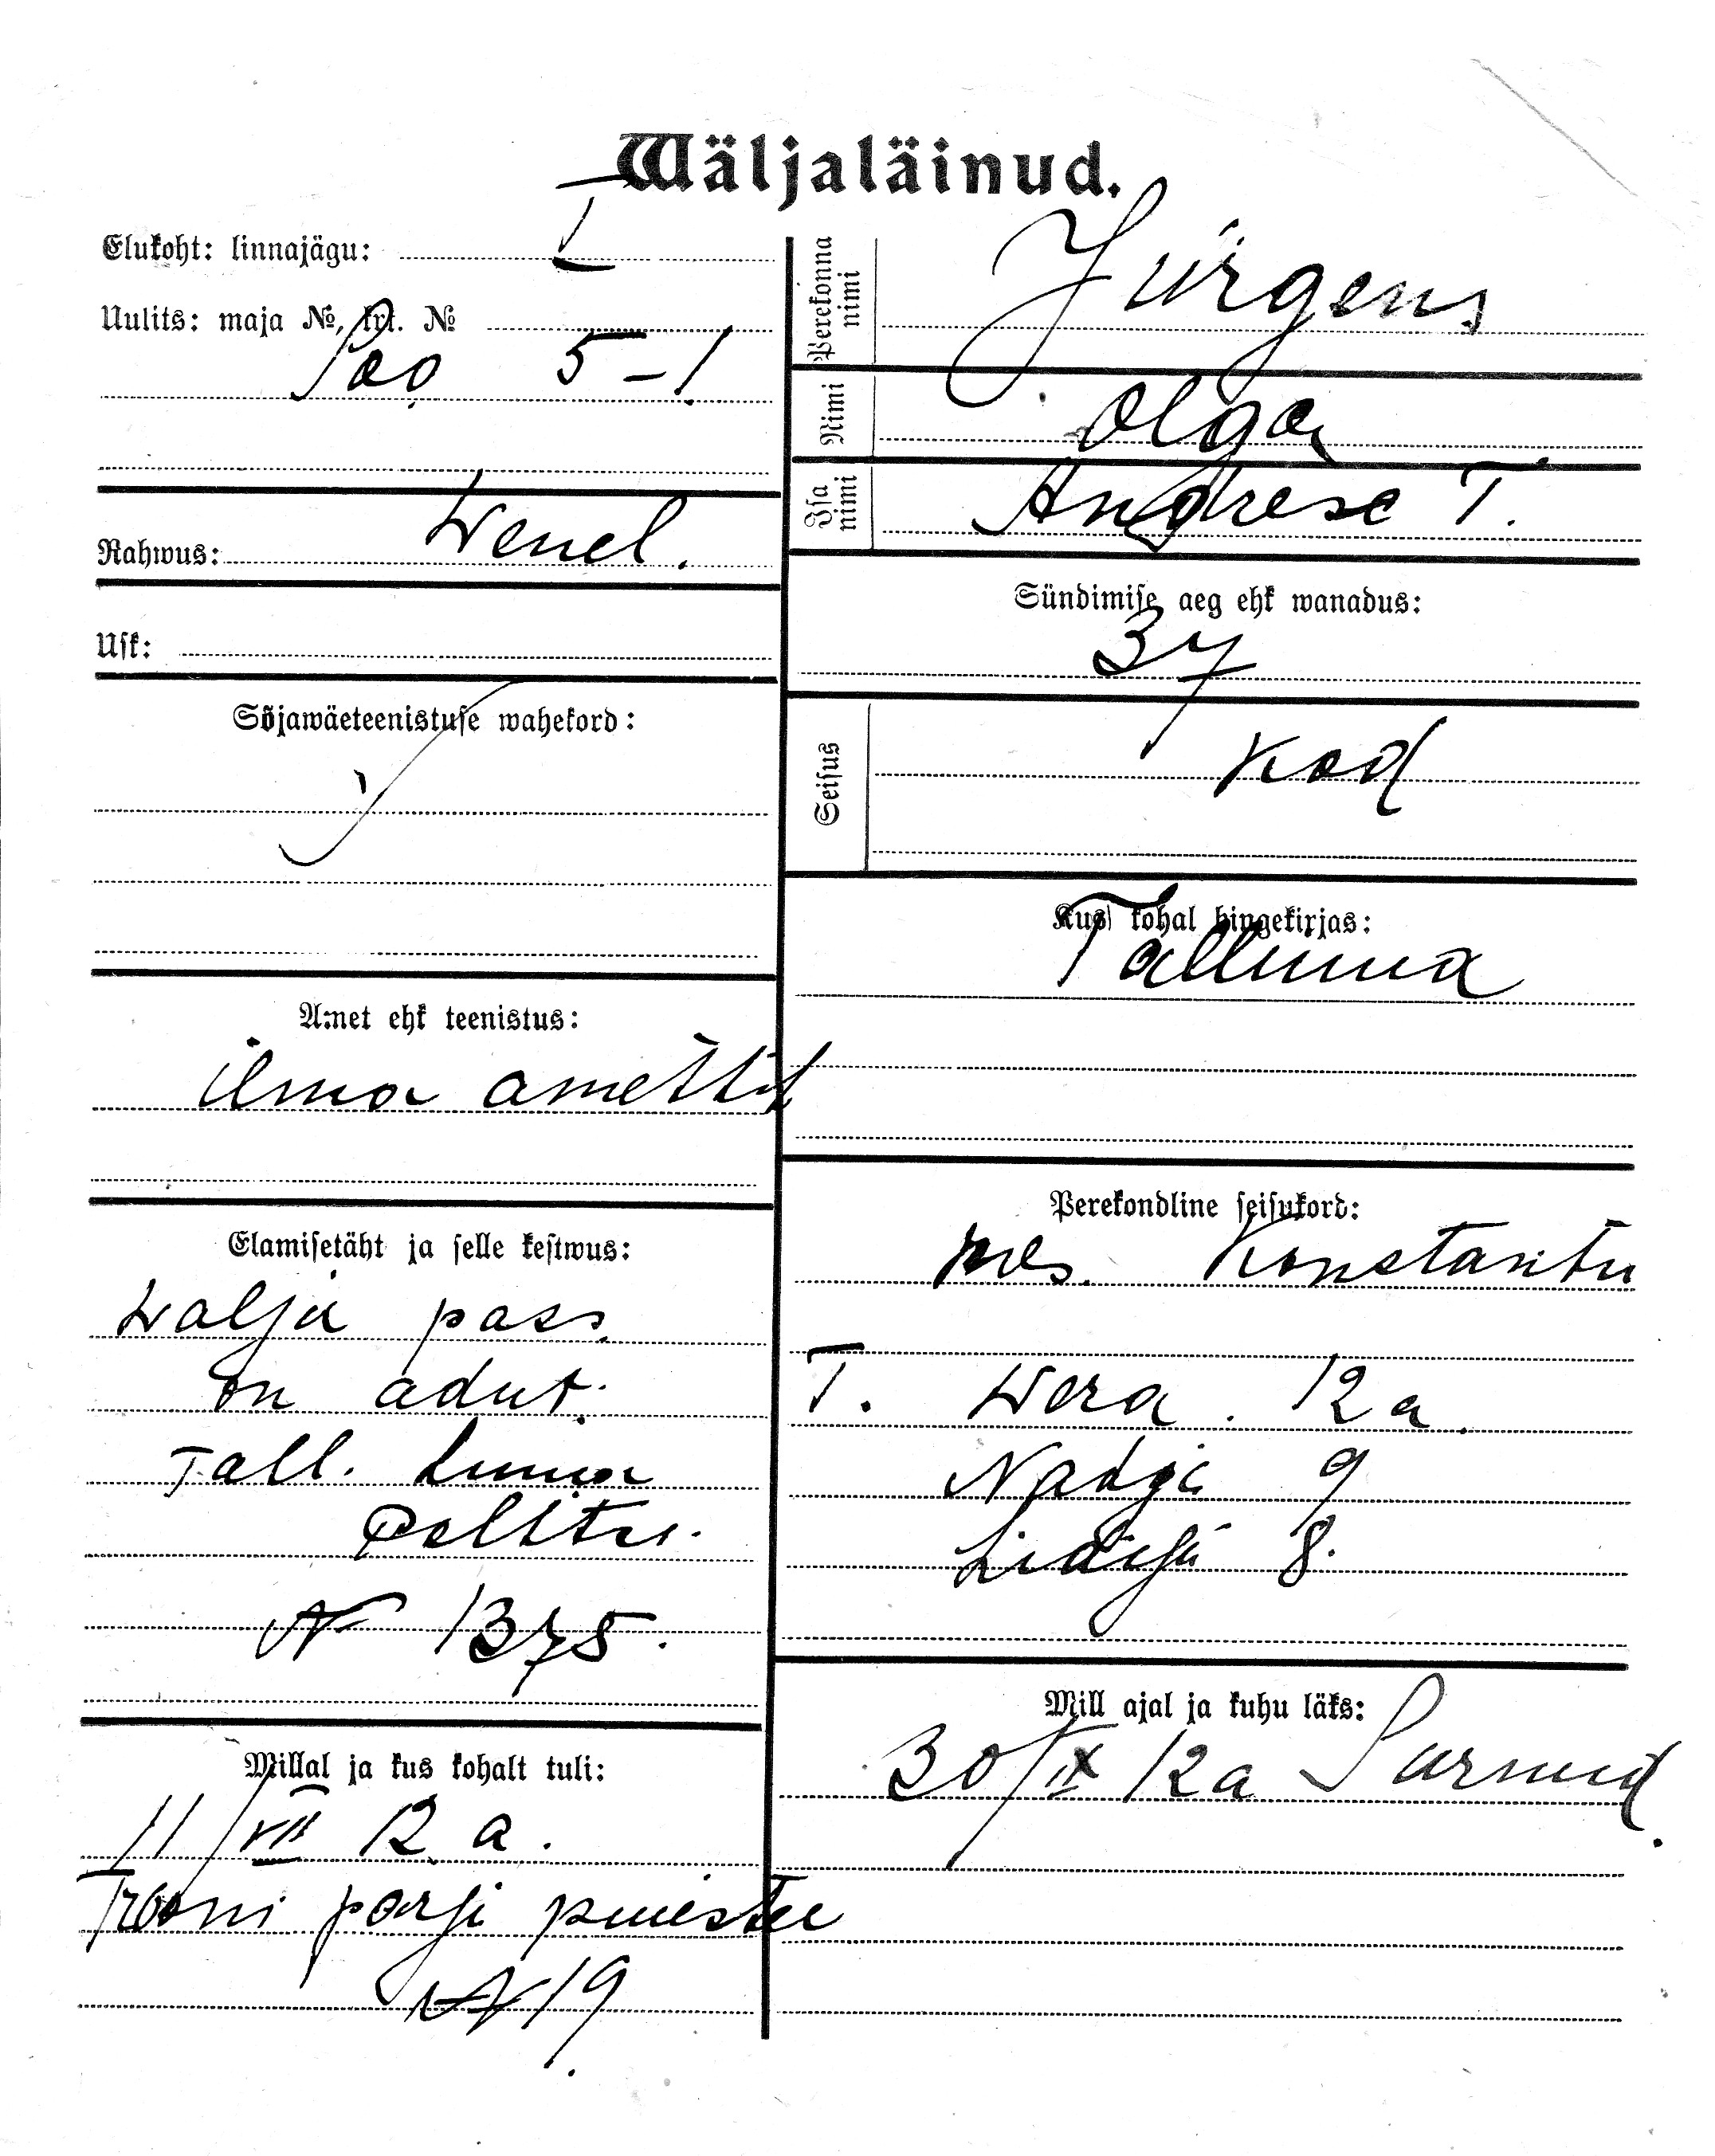 Wäljaläinud.
Elukoht: linnajägu: I
Uulits: maja №, krt. №
Soo 5-1
Rahwus: Wenel.
Usk:
Sõjawäeteenistuse wahekord:
Amet ehk teenistus:
ilma ametita
Elamisetäht ja selle kestwus:
Walja pass.
on adut.
Tall. Linna
Politsei.
N 1375.
Millal ja kus kohalt tuli:
11/VII 12 a.
parji puiestee
N 19
Perekonna nimi
Jürgens
Nimi
Olga
Isa nimi
Andrese T.
Sündimise aeg ehk wanadus:
37
Seisus
Kod
Kus kohal hingekirjas:
Tallinna
Perekondline seisukord:
Konstantin
T. Wera. 12 a.
Nadja 9
Lidija 8.
Mill ajal ja kuhu läks:
30/IX 12 a Surnud.